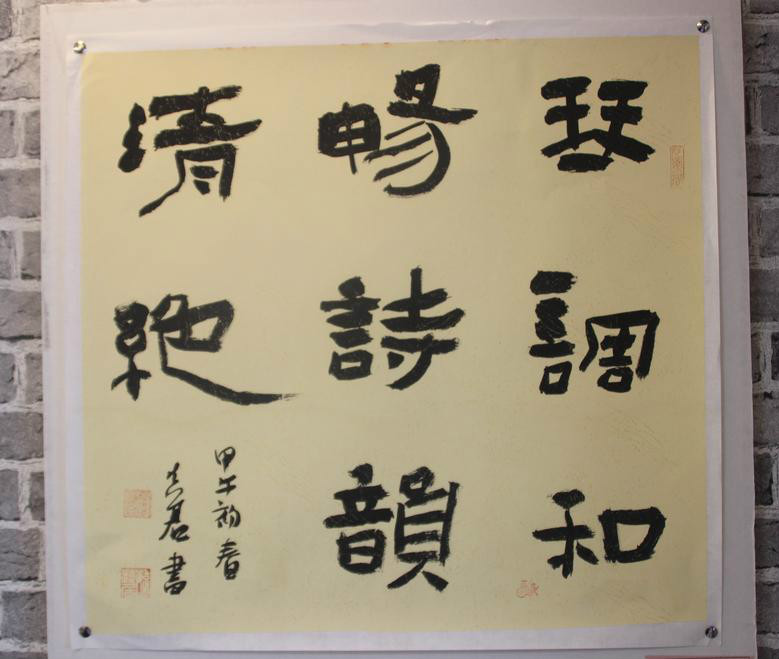 琴調和
暢詩韻
清絶
甲午初春
君書